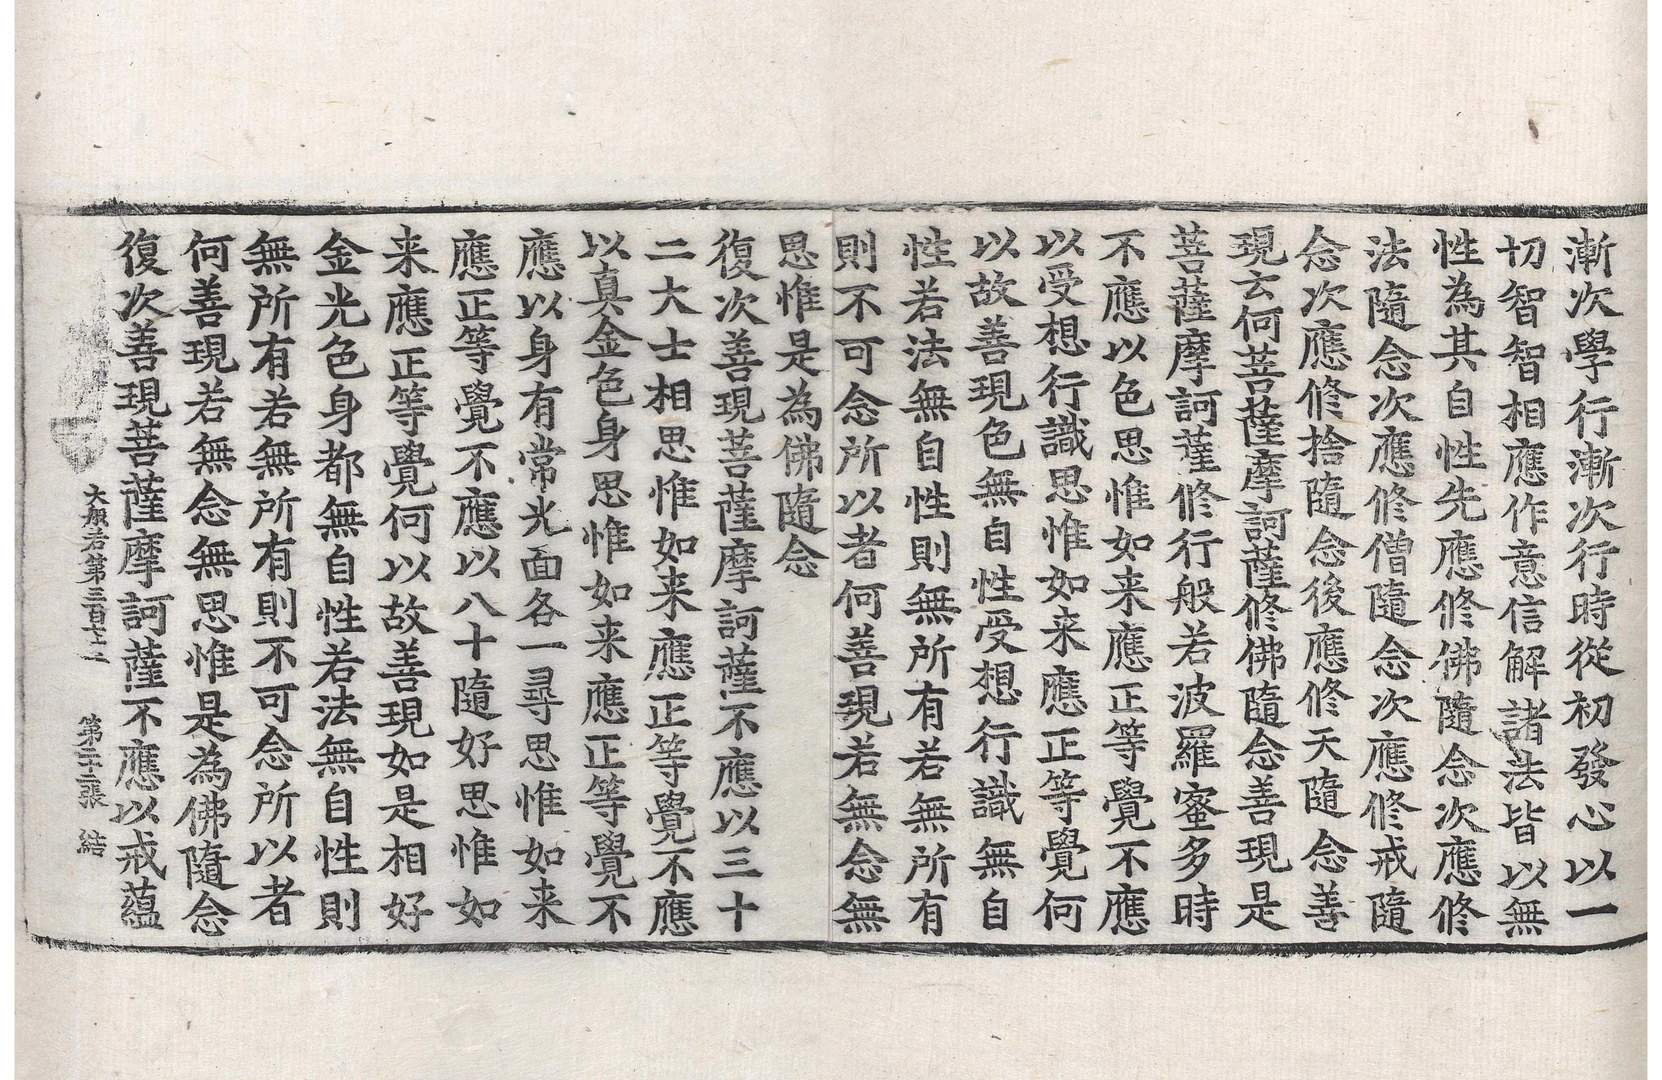 漸次學行漸次行時從初發心以一
切智智相應作意信解諸法皆以無
性為其自性先應修佛隨念次應修
法隨念次應修僧隨念次應修戒隨
念次應修捨隨念後應修天隨念善
現云何菩薩摩訶薩修佛隨念善現是
菩薩摩訶薩修行般若波羅蜜多時
不應以色思惟如来應正等覺不應
以受想行識思惟如来應正等覺何
以故善現色無自性受想行識無自
性若法無自性則無所有若無所有
則不可念所以者何善現若無念無
思惟是為佛隨念
復次善現菩薩摩訶薩不應以三十
二大士相思惟如来應正等覺不應
以真金色身思惟如来應正等覺不
應以身有常光面各一尋思惟如来
應正等覺不應以八十隨好思惟如
来應正等覺何以故善現如是相好
金光色身都無自性若法無自性則
無所有若無所有則不可念所以者
何善現若無念無思惟是為佛隨念
復次善現菩薩摩訶薩不應以戒蘊
大般若第三百七十二 第二十二張 結